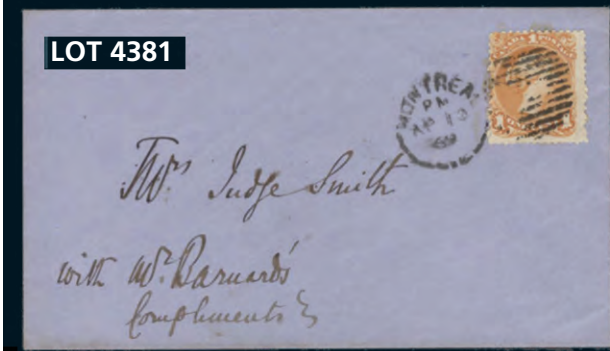 LOT 4381
MONTREAL
PM
AP 13
69
1
1 1
Mrs Judge Smith
with Mr. Barnard's
Compliments